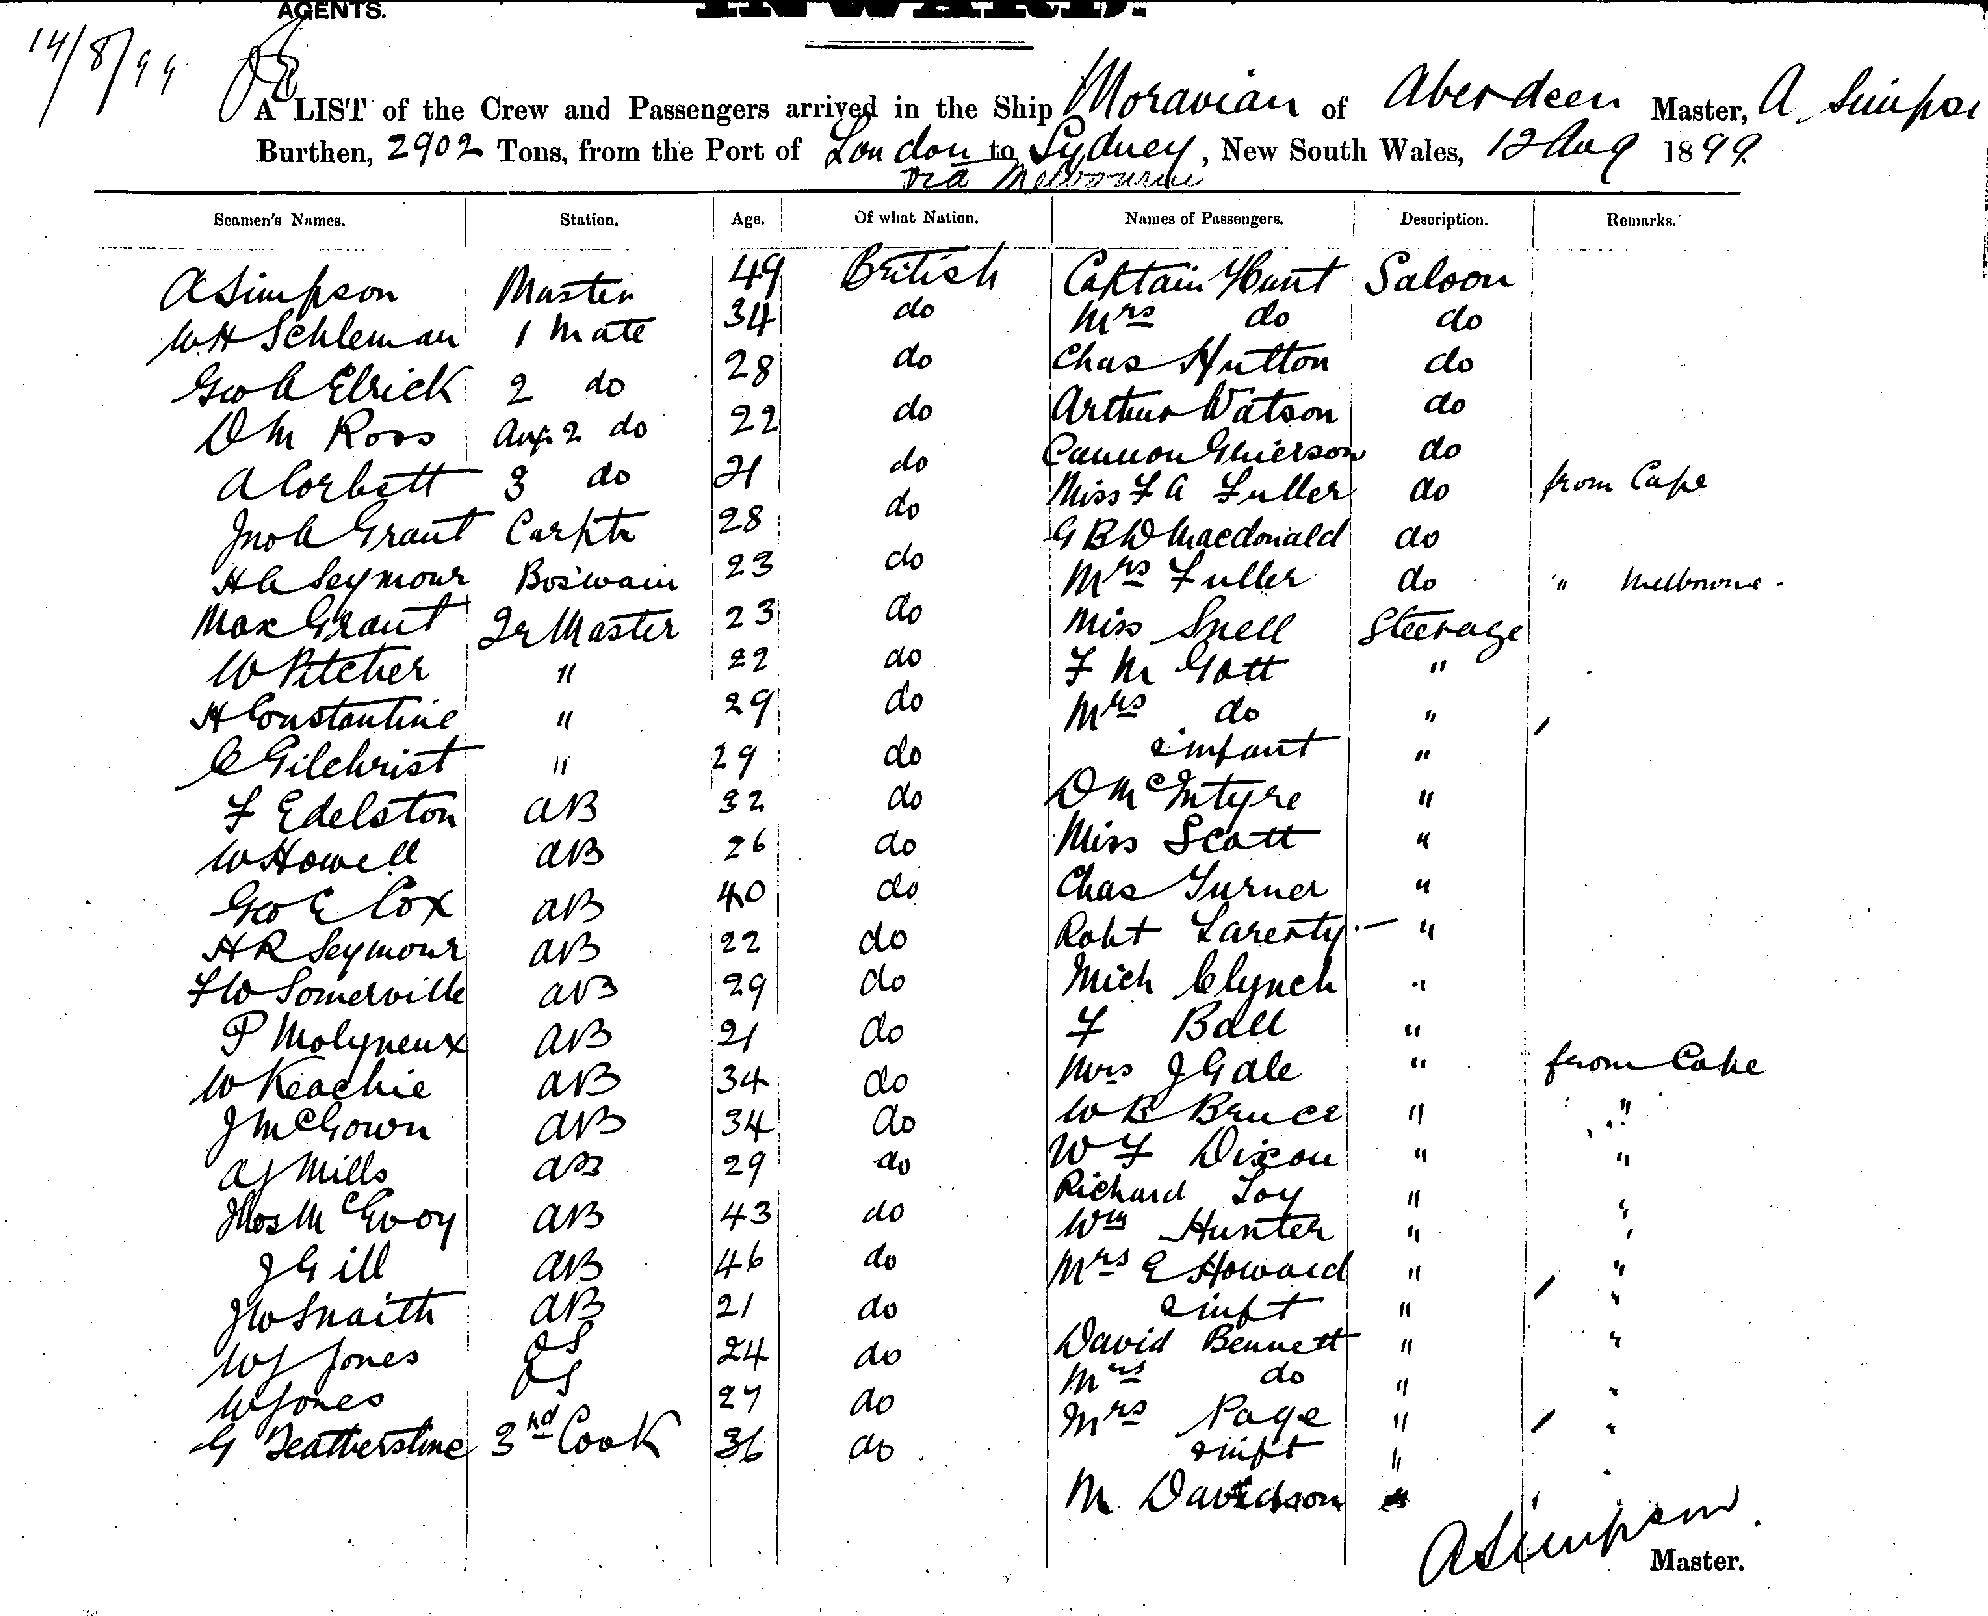 AGENTS.
INWARD.
14/8/99
A LIST of the Crew and Passengers arrived in the Ship Moravian of Aberdeen Master, A. Simpso
Burthen, 2902 Tons, from the Port of London to Sydney, New South Wales, 12 Aug 1899.
via Melbourne
Seamen's Names. Station. Age. Of what Nation. Names of Passengers. Description. Remarks.
A Simpson Master 49 British Captain Hunt Saloon
W H Schleman 1 Mate 34 do Mrs do do
Geo A Elrick 2 do 28 do Chas Hutton do
D M Ross Aup 2 do 22 do Arthur Watson do
A Corbett 3 do 21 do Cannon Grierson do
Jno A Grant Carptr 28 do Miss F A Fuller do from Cape
H A Seymour Bos'wain 23 do G B W Macdonald do
Max Grant Qr Master 23 do Mrs Fuller do " Melbourne.
W Pitcher " 22 do Miss Snell Steerage
H Constantine " 29 do F M Gott "
C Gilchrist " 29 do Mrs do "
F Edelston AB 32 do & infant "
W Howell AB 26 do D McIntyre "
Geo E Cox AB 40 do Miss Scott "
H R Seymour AB 22 do Chas Turner "
F W Somerville AB 29 do Robt Larerty - "
P Molyneux AB 21 do Mich Clynch "
W Keachie AB 34 do F Ball "
J McGown AB 34 do Mrs J Gale " from Cape
A J Mills AB 29 do W B Bruce " "
Thos McEvoy AB 43 do W F Dixon " "
J Gill AB 46 do Richard Toy " "
J W Snaith AB 21 do Wm Hunter " "
W J Jones OS 24 do Mrs E Howard " "
W Jones OS 27 do & inft " "
G Featherstine 3rd Cook 36 do David Bennett " "
Mrs do " "
Mrs Page " "
& inft "
M Davidson "
A Simpson
Master.